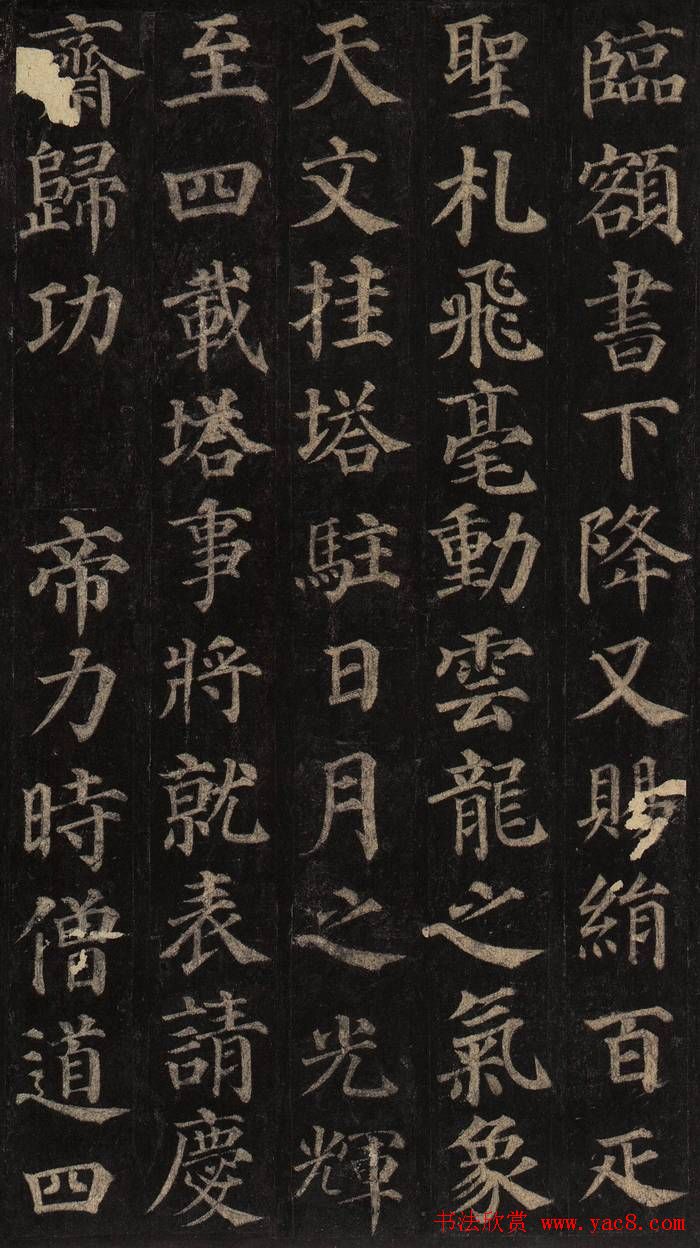 臨額書下降又賜絹百疋
聖札飛毫動雲龍之氣象
天文挂塔駐日月之光輝
至四載塔事將就表請慶
齋歸功 帝力時僧道四
书法欣赏 www.yac8.com